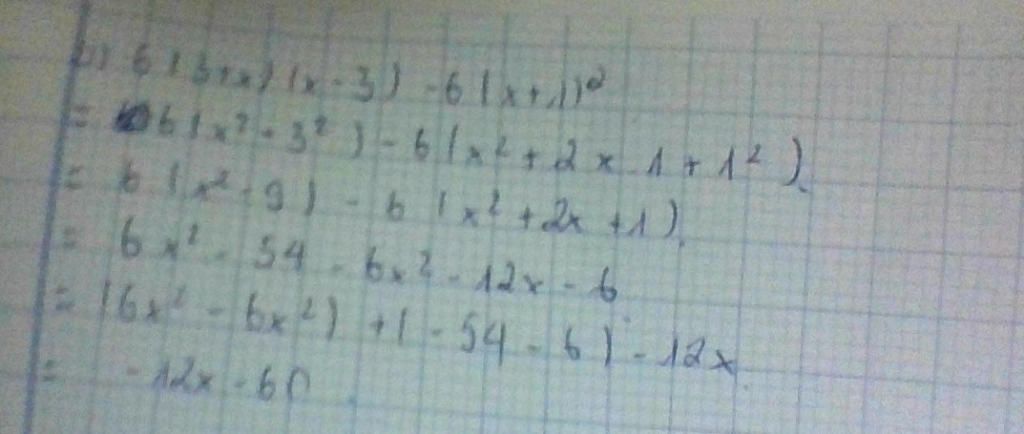 b) 6(3+x)(x-3) - 6(x+1)²
= 6(x² - 3²) - 6(x² + 2x.1 + 1²)
= 6(x² - 9) - 6(x² + 2x + 1)
= 6x² - 54 - 6x² - 12x - 6
= (6x² - 6x²) + (-54 - 6) - 12x
= -12x - 60